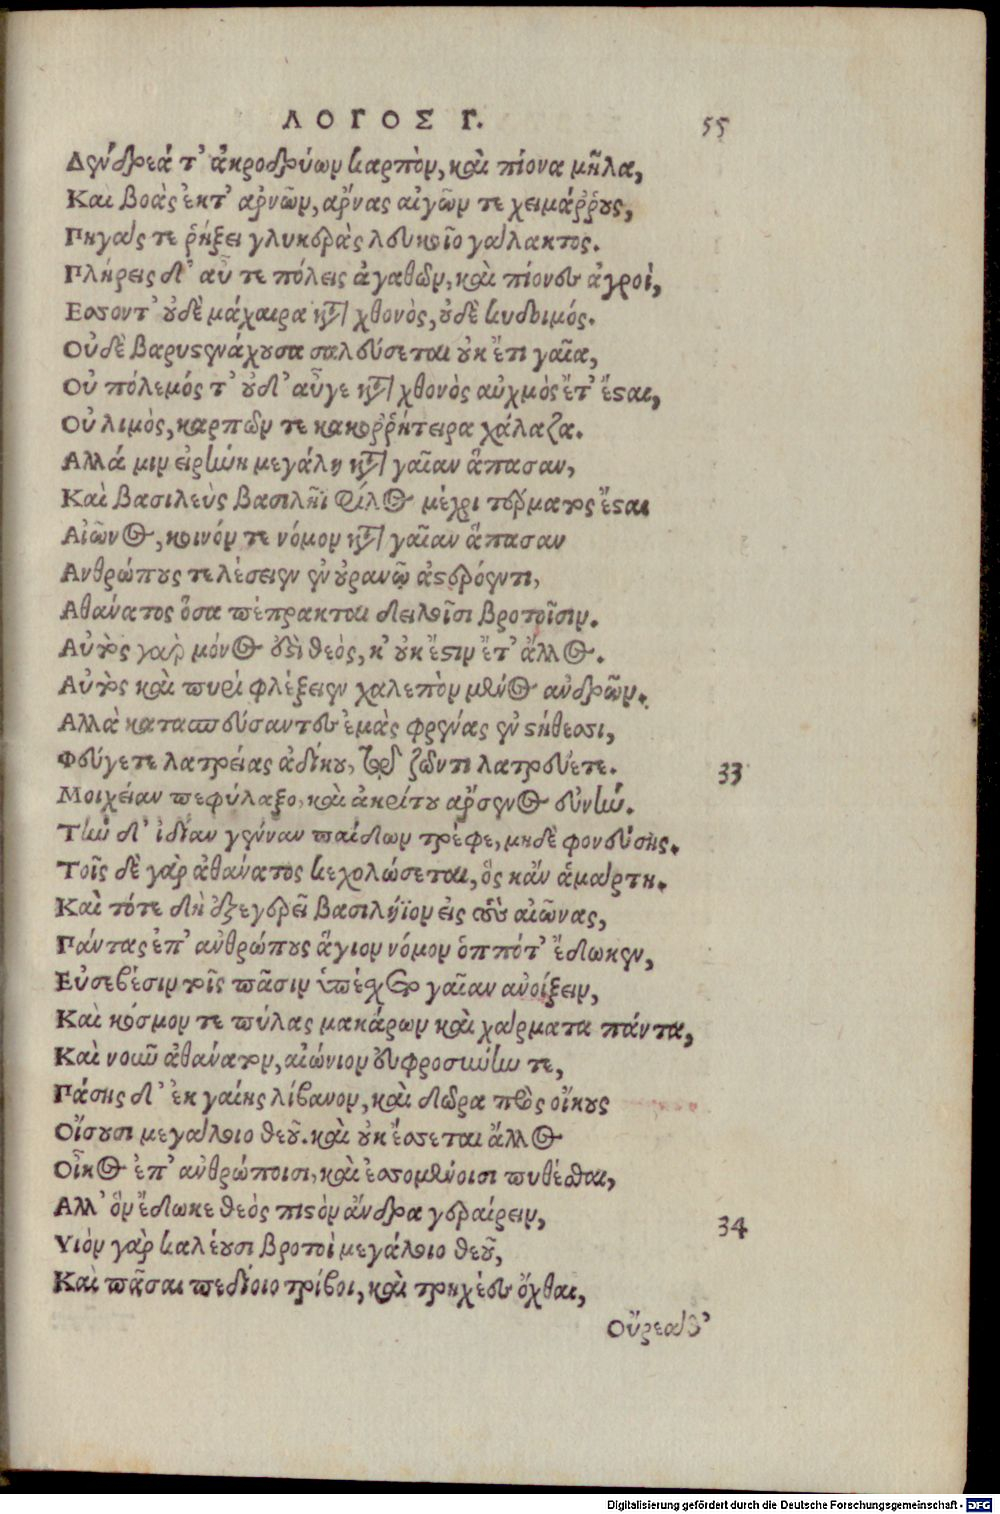 ΛΟΓΟΣ Γ. 55
Δένδρεά τ' ἀκροδρύων καρπὸν, καὶ πίονα μῆλα,
Καὶ βοὰς ἐκ τ' ἀρνῶν, ἄρνας αἰγῶν τε χειμάῤῥους,
Πηγάς τε ῥήξει γλυκερὰς λευκοῖο γάλακτος.
Πλήρεις δ' αὖ τε πόλεις ἀγαθῶν, καὶ πίονες ἀγροὶ,
Εσοντ' οὐδὲ μάχαιρα κατὰ χθονὸς, οὐδὲ κυδοιμός.
Οὐδὲ βαρυστενάχουσα σαλεύσεται οὐκ ἔτι γαῖα,
Οὐ πόλεμός τ' οὐδ' αὖγε κατὰ χθονὸς αὐχμὸς ἔτ' ἔσται,
Οὐ λιμὸς, καρπῶν τε κακοῤῥήτειρα χάλαζα.
Αλλά μιν εἰρήνη μεγάλη κατὰ γαῖαν ἅπασαν,
Καὶ βασιλεὺς βασιλῆϊ φίλος μέχρι τέρματος ἔσται
Αἰῶνος, κοινόν τε νόμον κατὰ γαῖαν ἅπασαν
Ανθρώπους τελέσειεν ἐν οὐρανῷ ἀστερόεντι,
Αθάνατος ὅσα πέπρακται δειλοῖσι βροτοῖσιν.
Αὐτὸς γὰρ μόνος ἐστὶ θεὸς, κ' οὐκ ἔστιν ἔτ' ἄλλος.
Αὐτὸς καὶ πυρὶ φλέξειεν χαλεπὸν μένος ἀνδρῶν.
Αλλὰ καταπσεύσαντες ἐμὰς φρένας ἐν στήθεσσι,
Φεύγετε λατρείας ἀδίκου, τῷ ζῶντι λατρεύετε. 33
Μοιχείαν πεφύλαξο, καὶ ἀκρίτου ἄρσενος εὐνήν.
Τὴν δ' ἰδίαν γένναν παίδων τρέφε, μηδὲ φονεύσῃς.
Τοῖς δὲ γὰρ ἀθάνατος κεχολώσεται, ὅς κἄν ἁμάρτη.
Καὶ τότε δὴ ἐξεγερεῖ βασιλήϊον εἰς τοὺς αἰῶνας,
Πάντας ἐπ' ἀνθρώπους ἅγιον νόμον ὁππότ' ἔδωκεν,
Εὐσεβέσιν τοῖς πᾶσιν ὑπέσχετο γαῖαν ἀνοίξειν,
Καὶ κόσμον τε πύλας μακάρων καὶ χάρματα πάντα,
Καὶ νοῦν ἀθάνατον, αἰώνιον εὐφροσύνην τε,
Πάσης δ' ἐκ γαίης λίβανον, καὶ δῶρα πρὸς οἴκους
Οἴσουσι μεγάλοιο θεοῦ. καὶ οὐκ ἔσσεται ἄλλος
Οἶκος ἐπ' ἀνθρώποισι, καὶ ἐσσομένοισι πυθέσθαι,
Αλλ' ὃν ἔδωκε θεὸς πιστὸν ἄνδρα γεραίρειν, 34
Υιὸν γὰρ καλέουσι βροτοὶ μεγάλοιο θεοῦ,
Καὶ πᾶσαι πεδίοιο τρίβοι, καὶ τρηχέες ὄχθαι,
Οὔρεά θ'
Digitalisierung gefördert durch die Deutsche Forschungsgemeinschaft - DFG